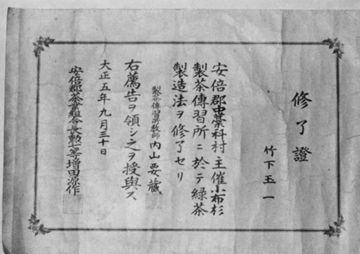 修了證
竹下玉一
安倍郡中藁科村主催小布杉
製茶傳習所ニ於テ緑茶
製造法ヲ修了セリ
製茶傳習教師 内山要藏
右薦告ヲ領シ之ヲ授與ス
大正五年九月三十日
安倍郡茶業組合長勲六等増田源作